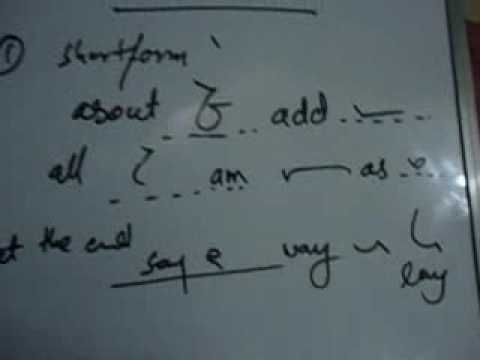 ① shortform
about add
all am as
at the end say vay
lay